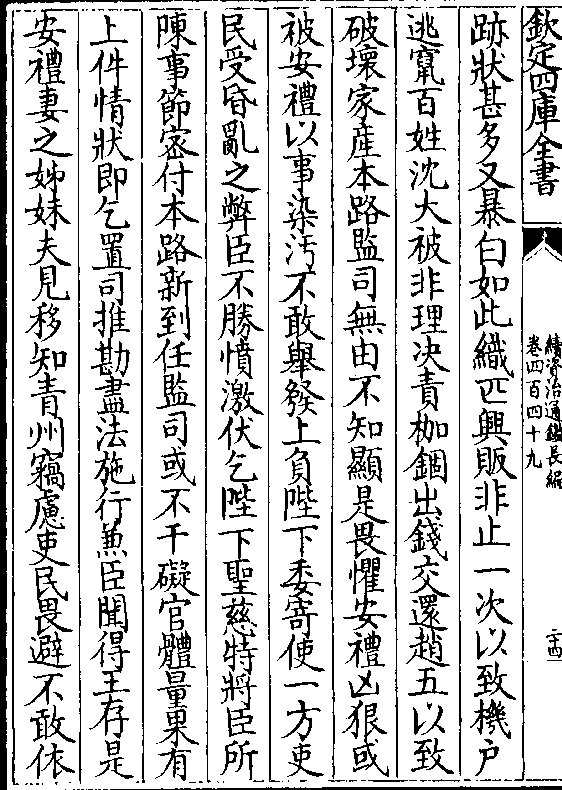 欽定四庫全書
續資治通鑑長編
卷四百四十九
二十四
跡狀甚多又暴白如此織匹興販非止一次以致機户
逃竄百姓沈大被非理决責枷錮出錢交還趙五以致
破壞家産本路監司無由不知顯是畏懼安禮凶狠或
被安禮以事染汚不敢舉發上負陛下委寄使一方吏
民受昏亂之弊臣不勝憤激伏乞陛下聖慈特將臣所
陳事節密付本路新到任監司或不干礙官體量果有
上件情狀即乞置司推勘盡法施行兼臣聞得王存是
安禮妻之姊妹夫見移知青州竊慮吏民畏避不敢依